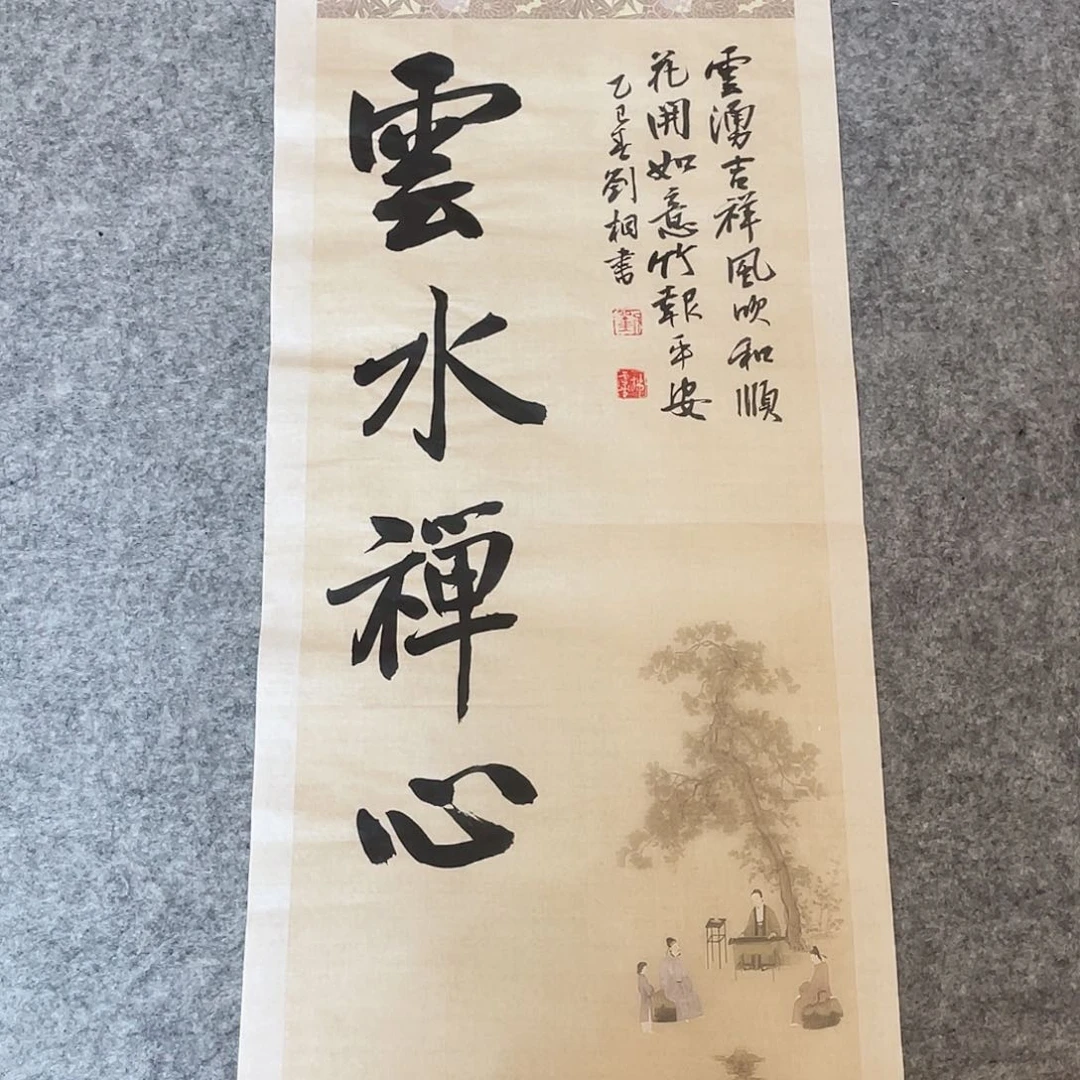 雲湧吉祥風吹和順
花開如意竹報平安
乙巳春劉相書
雲水禪心